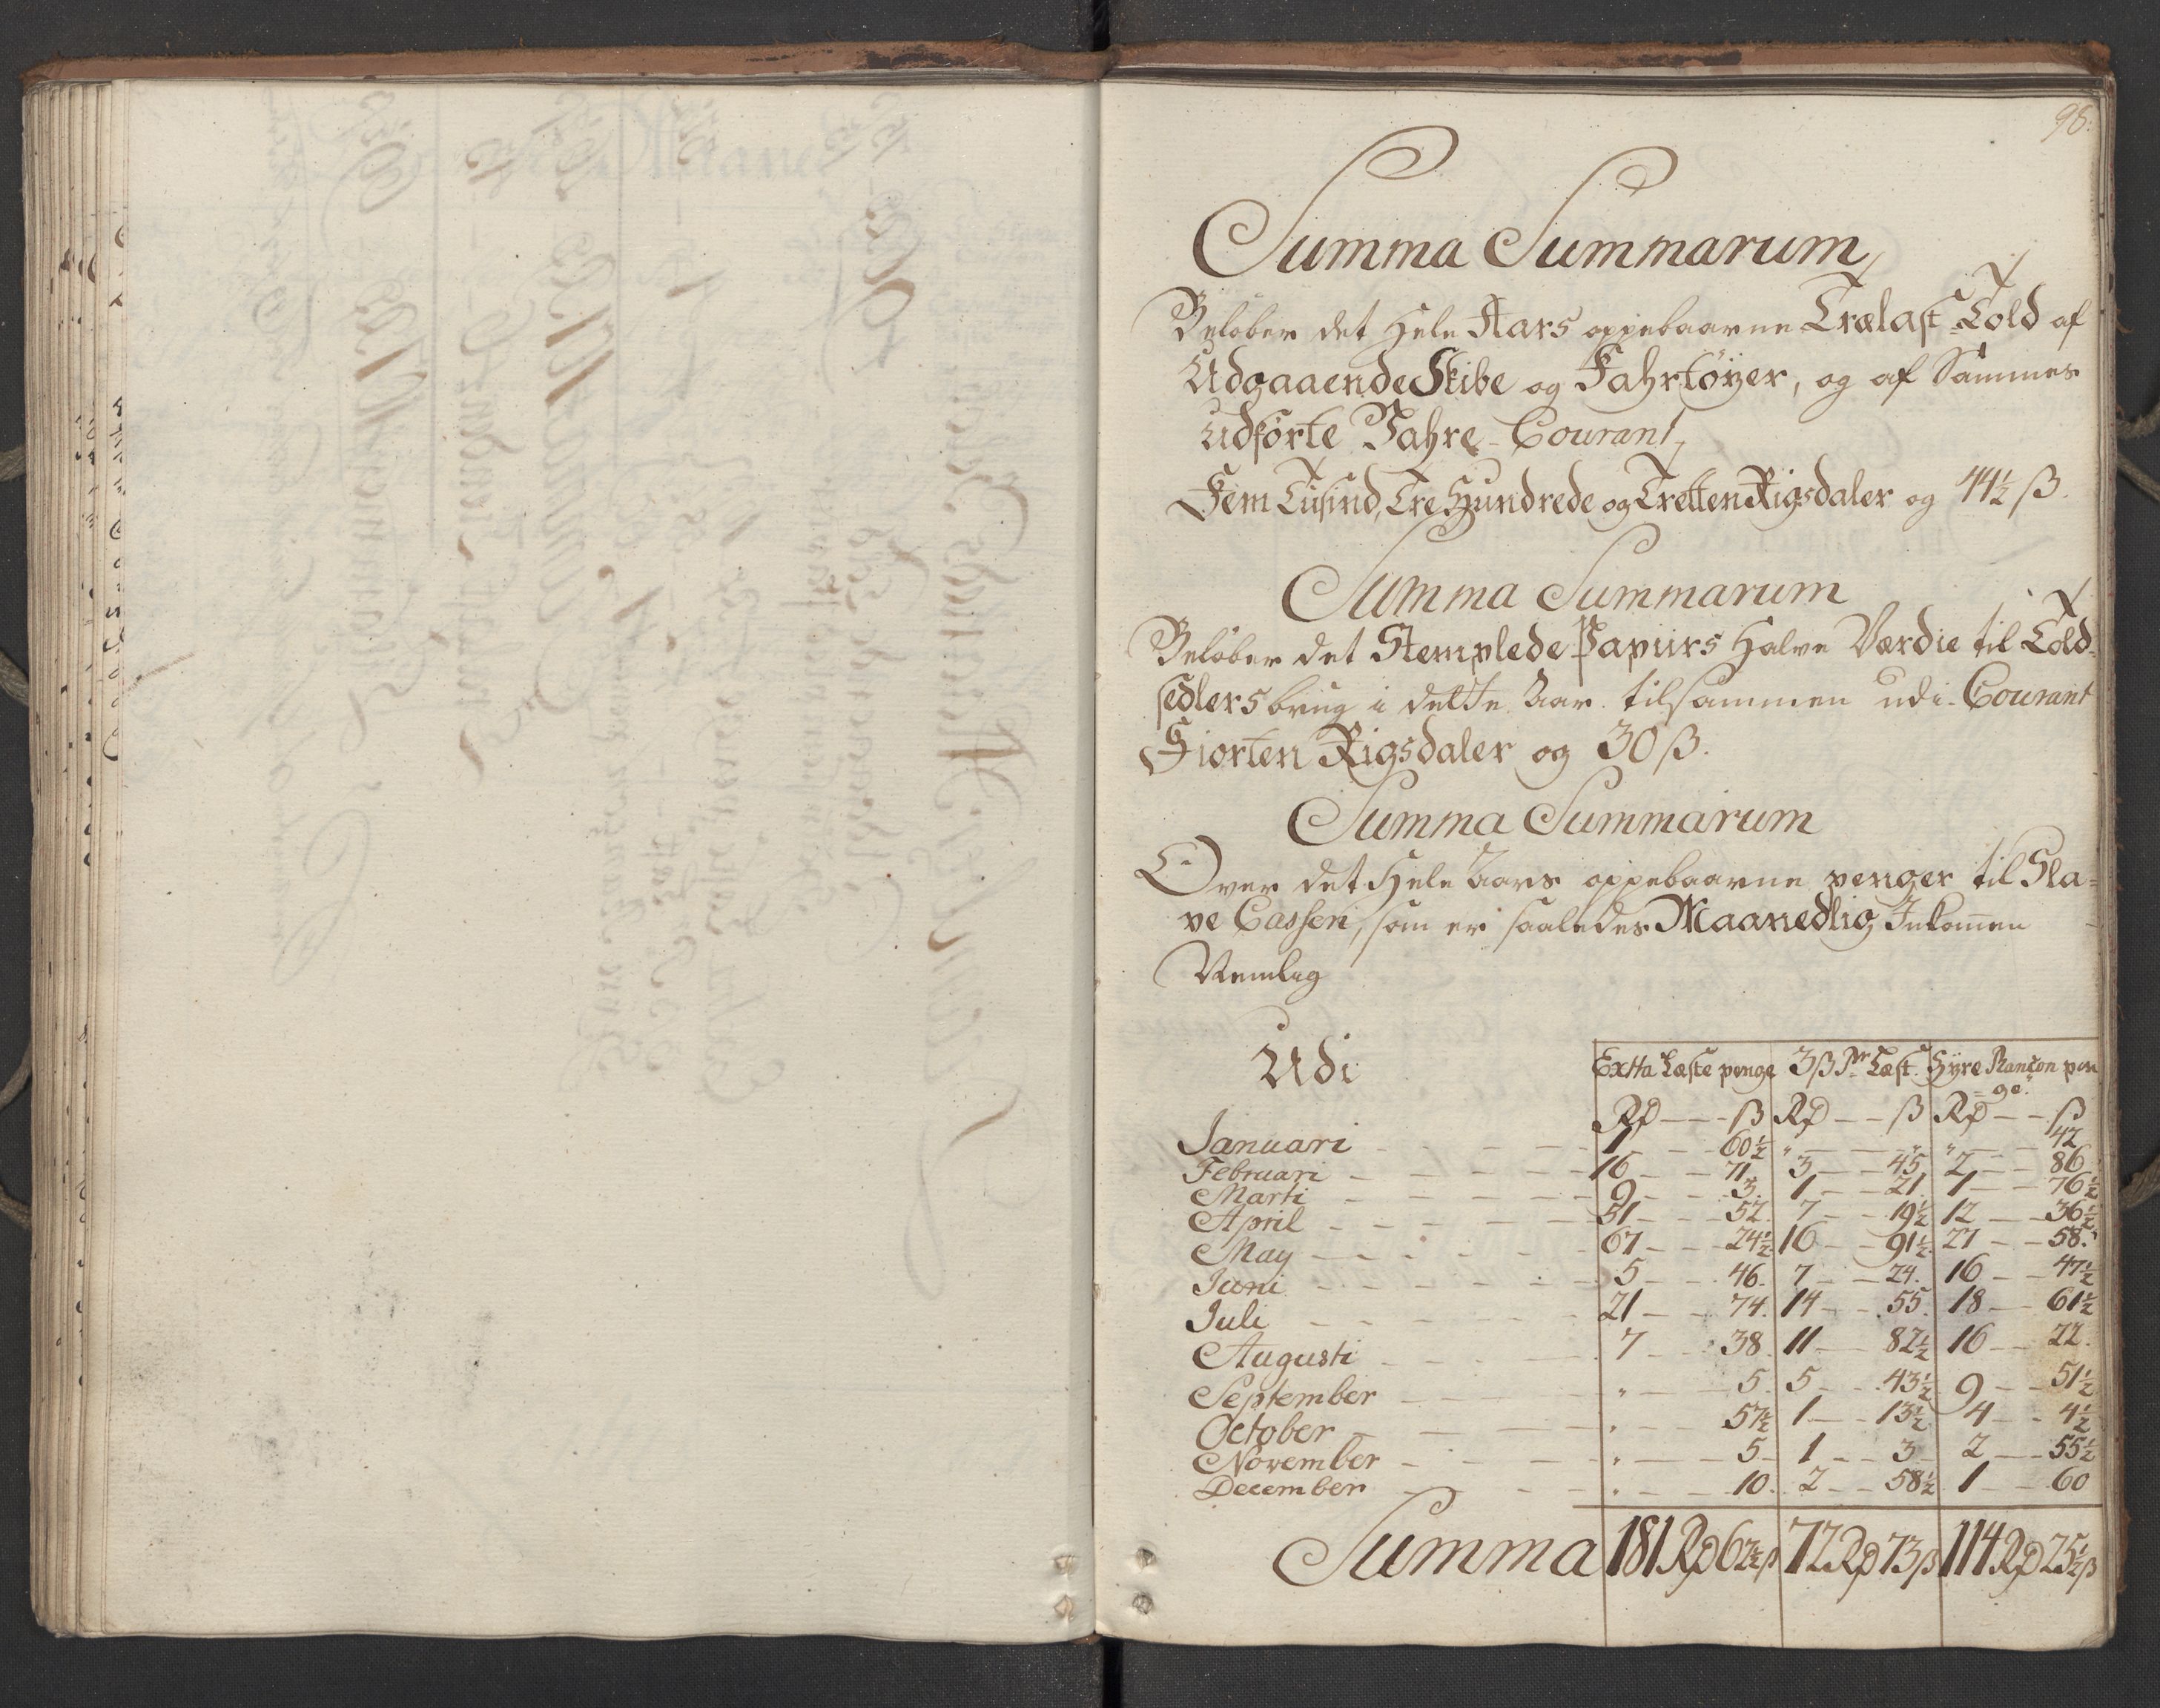 98.
Summa Summarum
Beløber det Hele Aars oppebaarne Trælast Told af
Udgaaende Skibe og Fahrtöyer, og af Sammes
Udførte Vahre Courant
Fem Tusind, Tre Hundrede og Tretten Rigsdaler og 44½ ß.
Summa Summarum
Beløber det Stemplede Papiirs Halve Værdie til Told-
sedlers brug i dette Aar tilsammen udi Courant
Fiorten Rigsdaler og 30 ß.
Summa Summarum
Over det Hele Aars oppebaarne penger til Sla-
ve Cassen, som er saaledes Maanedlig Inkomen
Nemlig
Udi Extta Læste penge 3 ß Pr Læst. Hyre Rancon pen
ge.
Rd ß Rd ß Rd ß
Januari 1 60½ " " " 42
Februari 16 71 3 45 2 86
Marti 9 3 1 21 1 76½
April 51 52 7 19½ 12 36½
May 67 24½ 16 91½ 27 58.
Juni 5 46. 7 24. 16 47½
Juli 21 74. 14 55. 18 61½
Augusti 7 38 11 82½ 16 22.
September " 5. 5 43½ 9 51½
October " 57½ 1 13½ 4 4½
November " 5 1 3 2 55½
December " 10. 2 58½ 1 60
Summa 181 Rd 62½ ß 72 Rd 73 ß 114 Rd 25½ ß